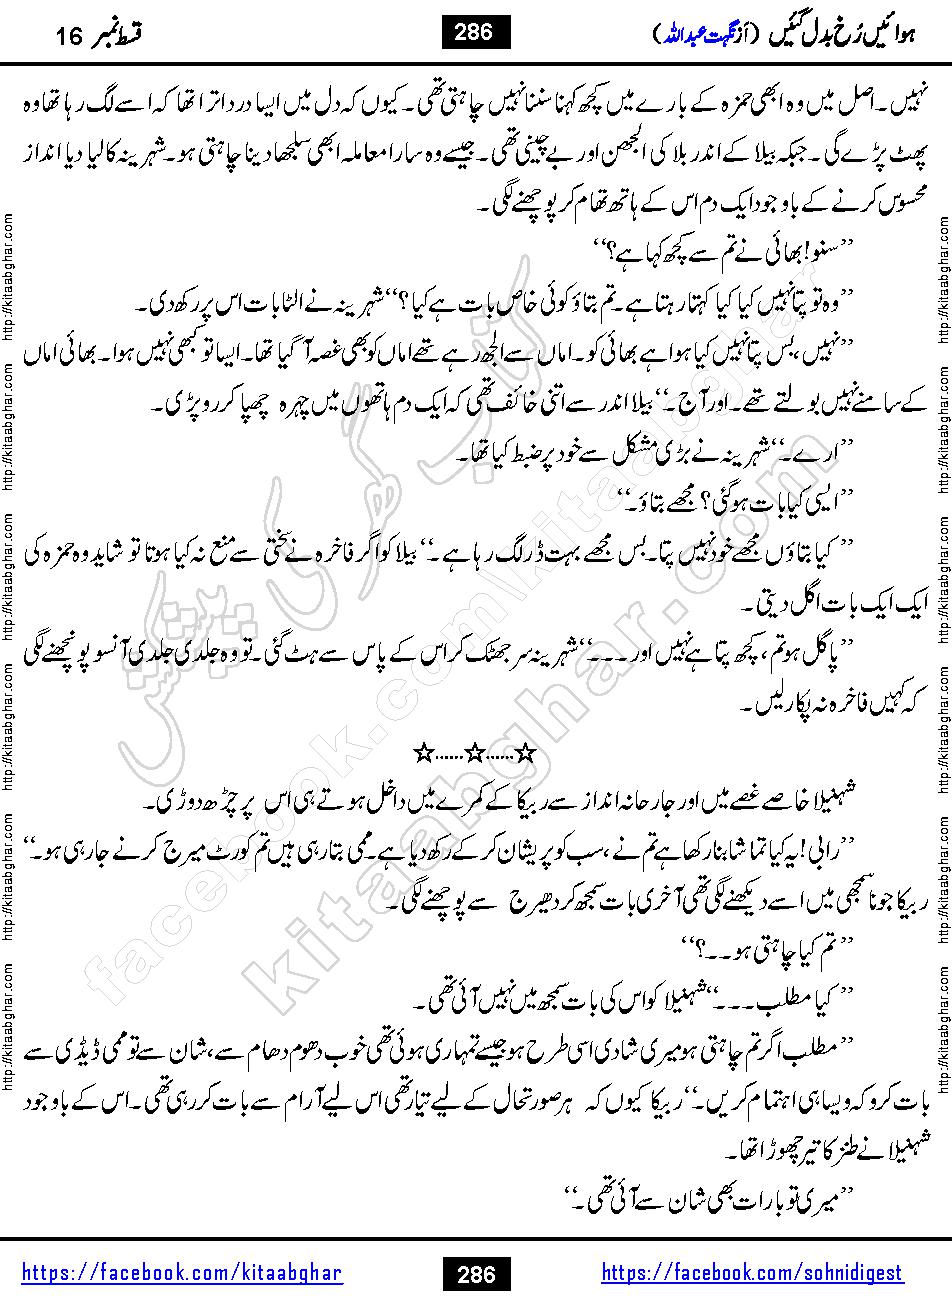 ہوائیں رُخ بدل گئیں (از نگہت عبداللہ)
286
قسط نمبر 16
نہیں۔ اصل میں وہ ابھی حمزہ کے بارے میں کچھ کہنا سننا نہیں چاہتی تھی۔ کیوں کہ دل میں ایسا درد اترا تھا کہ اسے لگ رہا تھا وہ
پھٹ پڑے گی۔ جبکہ بیلا کے اندر بلا کی الجھن اور بے چینی تھی۔ جیسے وہ سارا معاملہ ابھی سلجھا دینا چاہتی ہو۔ شہرینہ کا لیا دیا انداز
محسوس کرنے کے باوجود ایک دم اس کے ہاتھ تھام کر پوچھنے لگی۔
’’سنو! بھائی نے تم سے کچھ کہا ہے؟‘‘
’’وہ تو پتا نہیں کیا کیا کہتا رہتا ہے۔ تم بتاؤ کوئی خاص بات ہے کیا؟‘‘ شہرینہ نے الٹا بات اس پر رکھ دی۔
’’نہیں، بس پتا نہیں کیا ہوا ہے بھائی کو۔ اماں سے الجھ رہے تھے اماں کو بھی غصہ آ گیا تھا۔ ایسا تو کبھی نہیں ہوا۔ بھائی اماں
کے سامنے نہیں بولتے تھے۔ اور آج۔‘‘ بیلا اندر سے اتنی خائف تھی کہ ایک دم ہاتھوں میں چہرہ چھپا کر رو پڑی۔
’’ارے۔‘‘ شہرینہ نے بڑی مشکل سے خود پر ضبط کیا تھا۔
’’ایسی کیا بات ہو گئی؟ مجھے بتاؤ۔‘‘
’’کیا بتاؤں مجھے خود نہیں پتا۔ بس مجھے بہت ڈر لگ رہا ہے۔‘‘ بیلا کو اگر فاخرہ نے سختی سے منع نہ کیا ہوتا تو شاید وہ حمزہ کی
ایک ایک بات اگل دیتی۔
’’پاگل ہو تم، کچھ پتا ہے نہیں اور۔۔۔‘‘ شہرینہ سر جھٹک کر اس کے پاس سے ہٹ گئی۔ تو وہ جلدی جلدی آنسو پونچھنے لگی
کہ کہیں فاخرہ نہ پکار لیں۔
☆......☆......☆
شہنیلا خاصے غصے میں اور جارحانہ انداز سے ربیکا کے کمرے میں داخل ہوتے ہی اس پر چڑھ دوڑی۔
’’رابی! یہ کیا تماشا بنا رکھا ہے تم نے، سب کو پریشان کر کے رکھ دیا ہے۔ ممی بتا رہی ہیں تم کورٹ میرج کرنے جا رہی ہو۔‘‘
ربیکا جو نا سمجھی میں اسے دیکھنے لگی تھی آخری بات سمجھ کر دھیرج سے پوچھنے لگی۔
’’تم کیا چاہتی ہو۔۔؟‘‘
’’کیا مطلب۔۔۔‘‘ شہنیلا کو اس کی بات سمجھ میں نہیں آئی تھی۔
’’مطلب اگر تم چاہتی ہو میری شادی اسی طرح ہو جیسے تمہاری ہوئی تھی خوب دھوم دھام سے، شان سے تو ممی ڈیڈی سے
بات کرو کہ ویسا ہی اہتمام کریں۔‘‘ ربیکا کیوں کہ ہر صورتحال کے لیے تیار تھی اس لیے آرام سے بات کر رہی تھی۔ اس کے باوجود
شہنیلا نے طنز کا تیر چھوڑا تھا۔
’’میری تو بارات بھی شان سے آئی تھی۔‘‘
https://facebook.com/kitaabghar
286
https://facebook.com/sohnidigest
http://kitaabghar.com
http://kitaabghar.com
http://kitaabghar.com
http://kitaabghar.com
http://kitaabghar.com
http://kitaabghar.com
http://kitaabghar.com
http://kitaabghar.com
http://kitaabghar.com
http://kitaabghar.com
http://kitaabghar.com
http://kitaabghar.com
کتاب گھر کی پیشکش
facebook.com/kitaabghar
kitaabghar.com